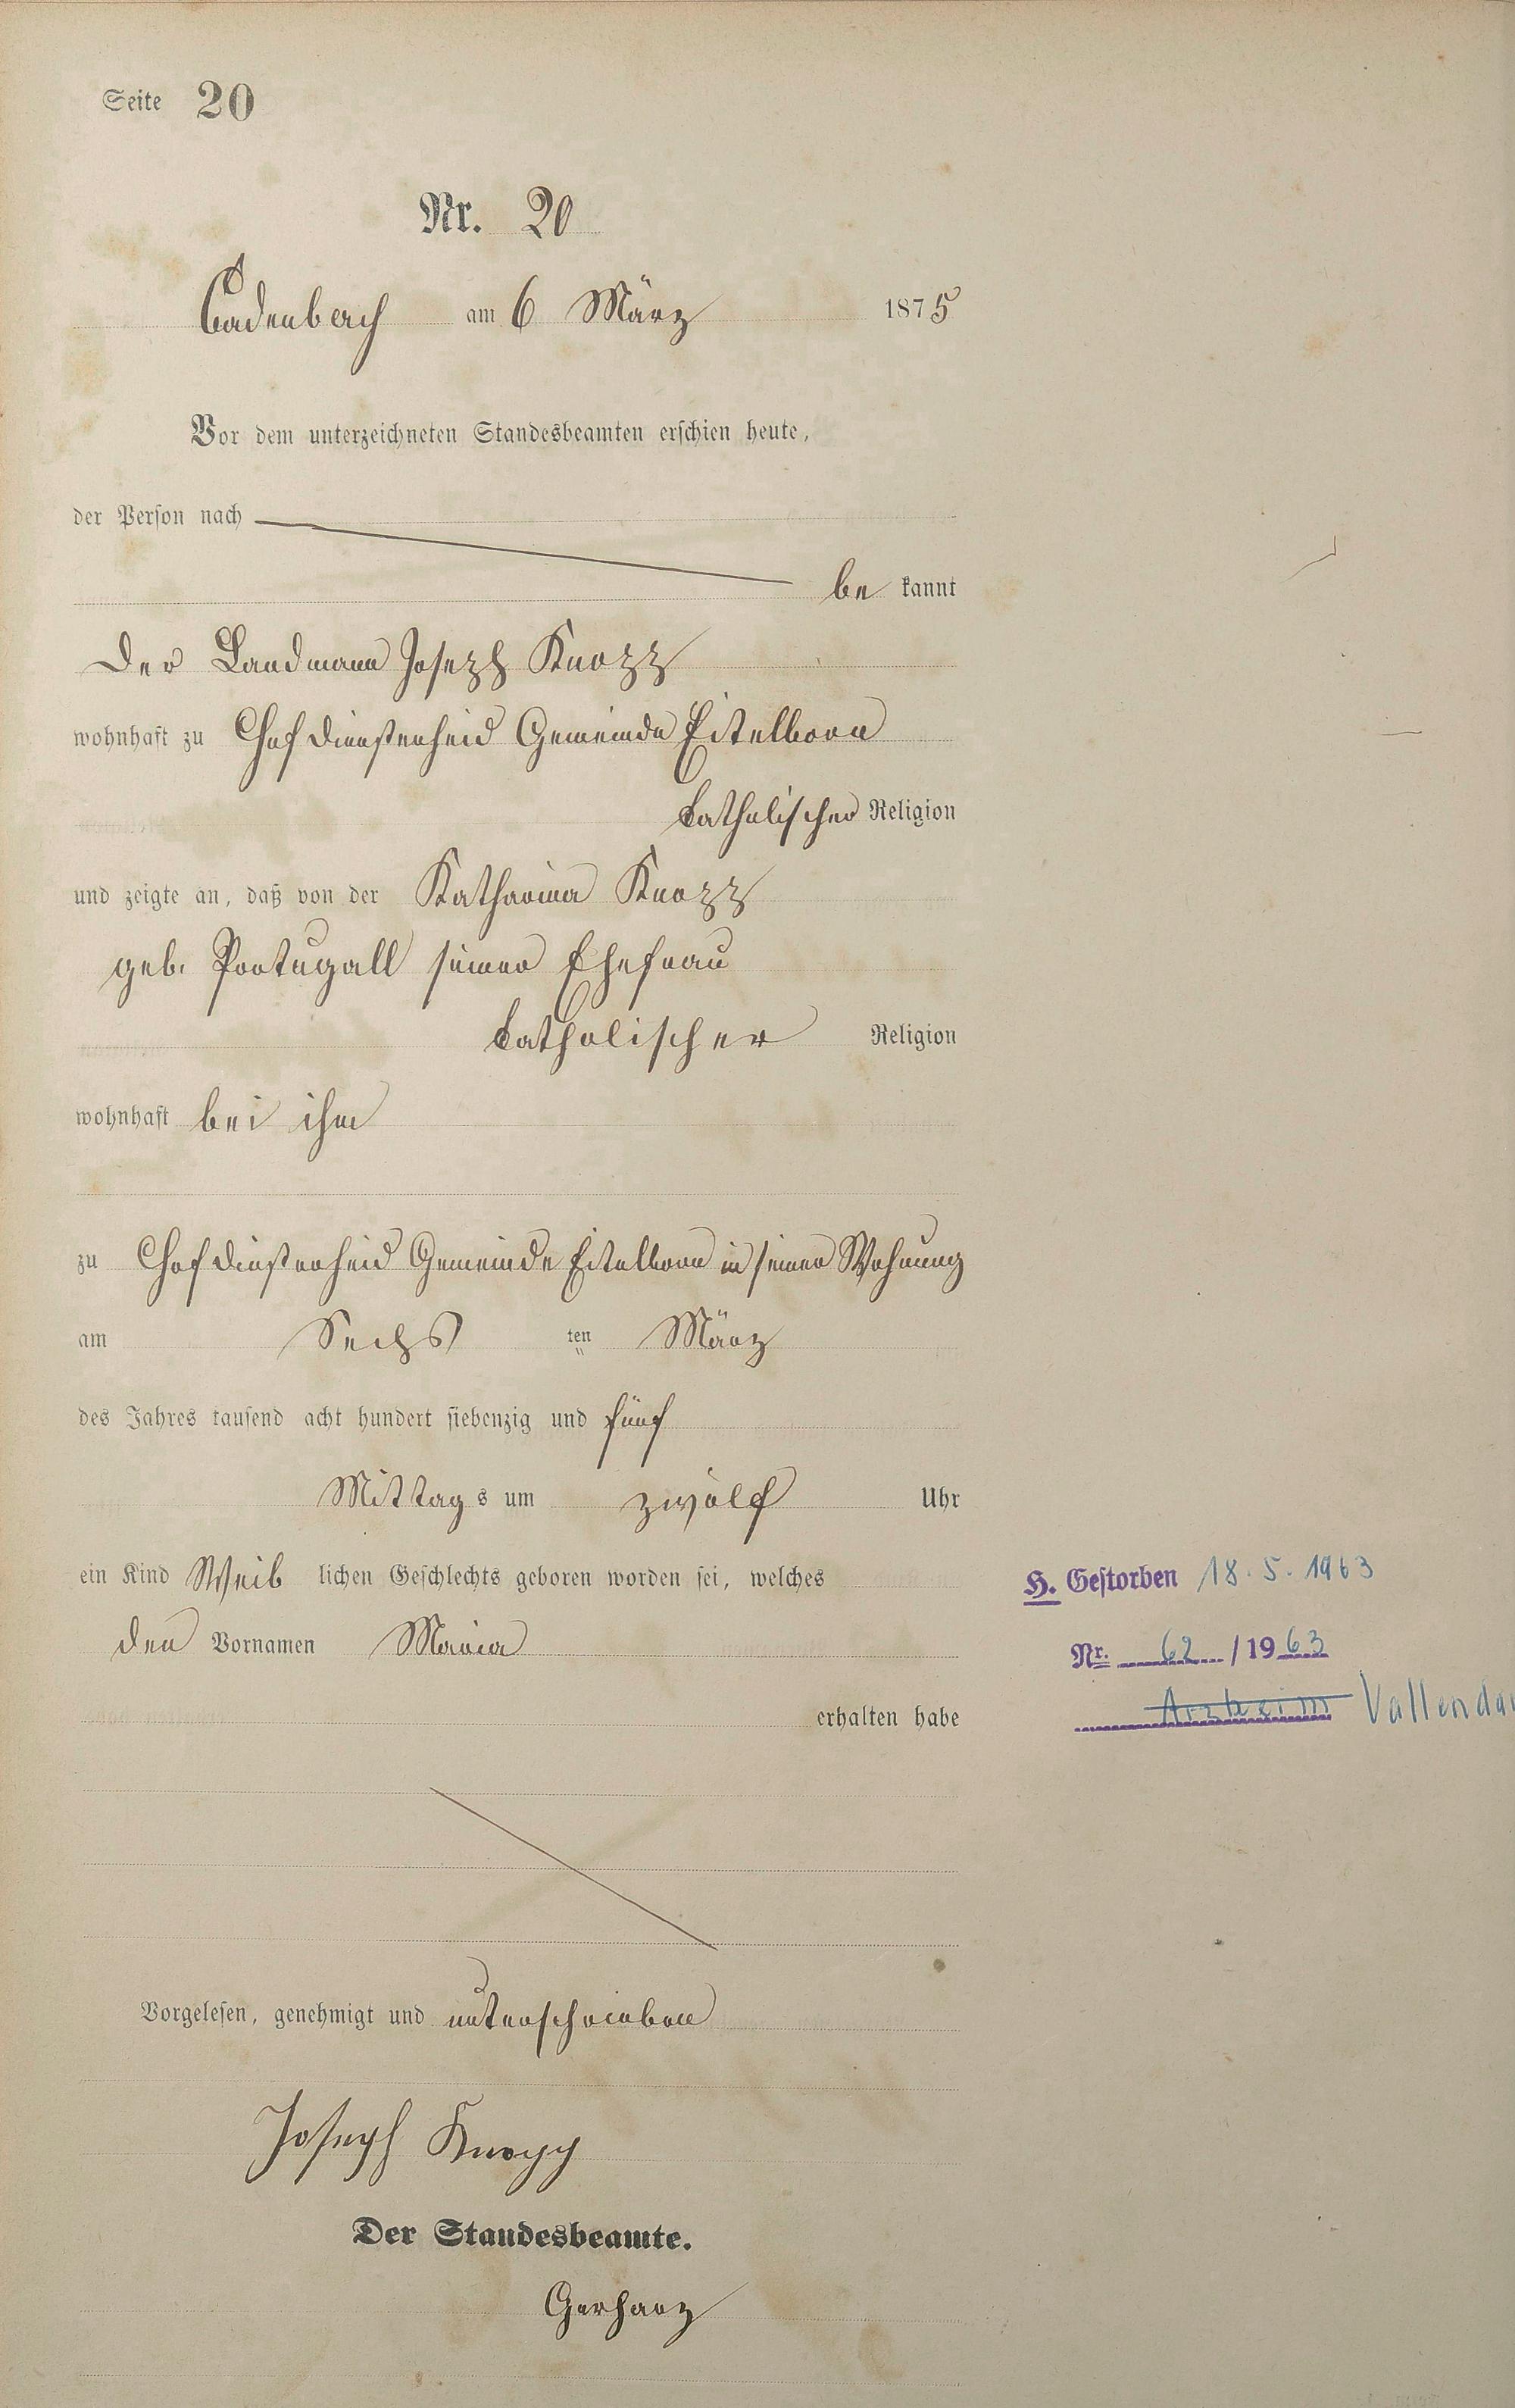 Seite 20
Nr. 20
Cadenbach am 6 März 1875
Vor dem unterzeichneten Standesbeamten erschien heute,
der Person nach
be kannt
Der Landmann Joseph Knopp
wohnhaft zu Hof Dienstenheid Gemeinde Eitelborn
katholischer Religion
und zeigte an, daß von der Katharina Knopp
geb. Portugall seiner Ehefrau
katholischer Religion
wohnhaft bei ihm
zu Hof Dinstenheid Gemeinde Eitelborn in seiner Wohnung
am Sechs ten März
des Jahres tausend acht hundert siebenzig und fünf
Mittag s um zwölf Uhr
ein Kind Weib lichen Geschlechts geboren worden sei, welches
H. Gestorben 18.5.1963
den Vornamen Maria
Nr. 62 / 1963
erhalten habe
Arzheim Vallendar
Vorgelesen, genehmigt und unterschrieben
Joseph Knopp
Der Standesbeamte.
Gerharz